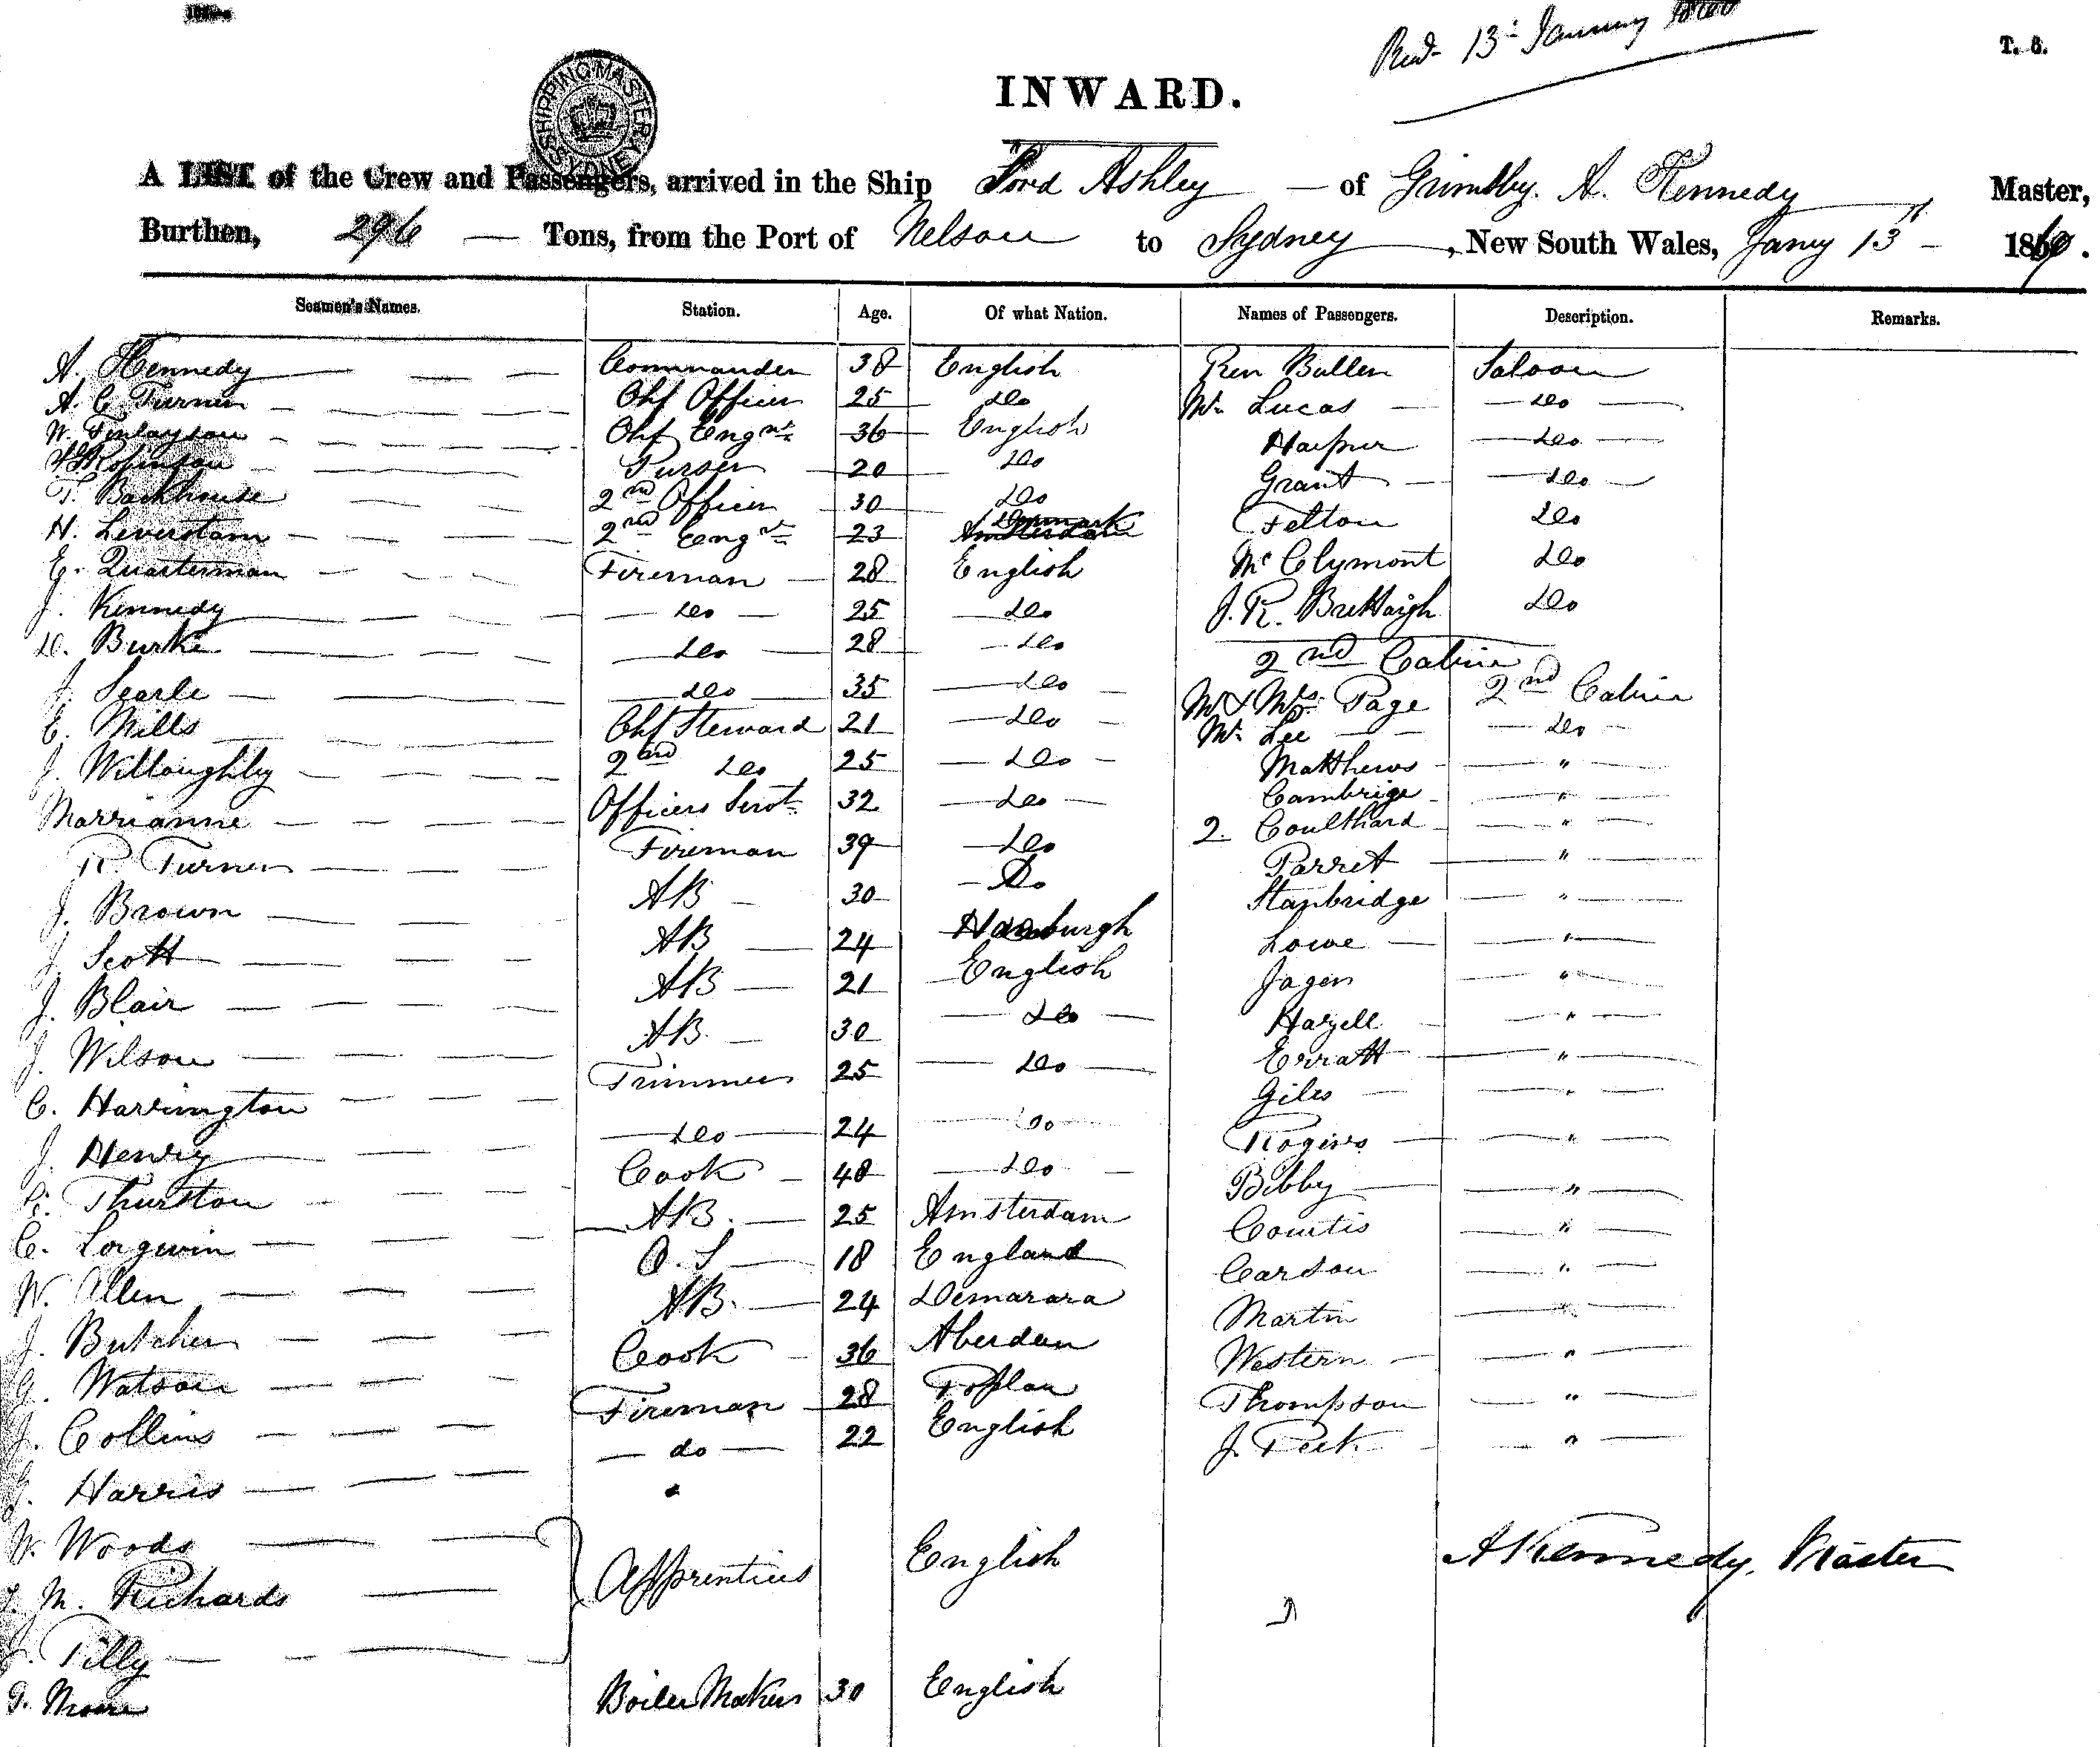 Recd. 13th January 1860
T. 3.
SHIPPING MASTER SYDNEY
INWARD.
A LIST of the Crew and Passengers, arrived in the Ship Lord Ashley — of Grimsby. A. Kennedy Master,
Burthen, 296 — Tons, from the Port of Nelson to Sydney, New South Wales, Jany 13th — 1860.
Seamen's Names. Station. Age. Of what Nation. Names of Passengers. Description. Remarks.
A. Kennedy Commander 38 English Rev Bullen Saloon
A. C. Turner Chf Officer 25 Do Mr. Lucas Do
W. Finlayson Chf Engnr 36 English Harpur Do
Robinson Purser 20 Do Grant Do
T. Backhouse 2nd Officer 30 Do Felton Do
H. Leverstam 2nd Engnr 23 Denmark McClymont Do
E. Quarterman Fireman 28 English J. R. Brettaigh Do
J. Kennedy Do 25 Do 2nd Cabin
D. Burke Do 28 Do Mr & Mrs. Page 2nd Cabin
J. Searle Do 35 Do Mr. Lee Do
E. Mills Chf Steward 21 Do Matthews "
J. Willoughby 2nd Do 25 Do Cambrige "
Marrianne Officers Servt. 32 Do 2. Coulthard "
R. Turner Fireman 39 Do Parret "
J. Brown AB 30 Do Stanbridge "
J. Scott AB 24 Hamburgh Lowe "
J. Blair AB 21 English Jagers "
J. Wilson AB 30 Do Hazell "
C. Harrington Trimmer 25 Do Erratt "
J. Henry Do 24 Do Giles "
G. Thurston Cook 48 Do Rogers "
C. Lorgwin AB. 25 Amsterdam Bibby "
W. Allen O. S 18 England Courtis "
J. Butcher AB. 24 Demarara Carson "
G. Watson Cook 36 Aberdeen Martin "
J. Collins Fireman 28 Poplar Western "
G. Harris do 22 English Thompson "
J. Peek "
W. Woods
M. Richards Apprentices English
Tilly
A Kennedy, Master
G. Moore Boiler Maker 30 English